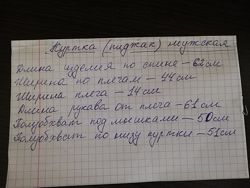 Куртка (пиджак) мужская
Длина изделия по спине – 62 см
Ширина по плечам – 44 см
Ширина плеча – 14 см
Длина рукава от плеча – 61 см
Полуобхват под мышками – 50 см
Полуобхват по низу куртки – 51 см